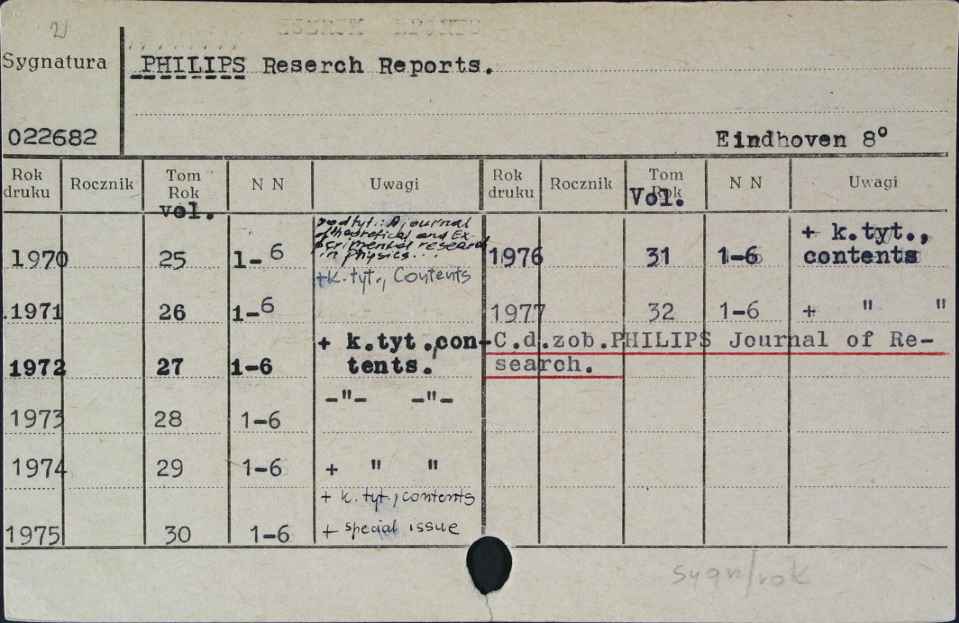 2)
Sygnatura
PHILIPS Reserch Reports.
022682
Eindhoven 8°
Rok druku Rocznik Tom Rok N N Uwagi Rok druku Rocznik Tom Rok N N Uwagi
vol. Vol.
podtyt.: A journal
of theoretical and Ex-
perimental research
in physics...
1970 25 1-6 +k.tyt., Contents
1976 31 1-6 + k.tyt., contents
1971 26 1-6
1977 32 1-6 + " "
1972 27 1-6 + k.tyt.,con-
tents.
C.d.zob.PHILIPS Journal of Re-
search.
1973 28 1-6 -"- -"-
1974 29 1-6 + " "
1975 30 1-6 + k.tyt., contents
+ special issue
sygn/rok